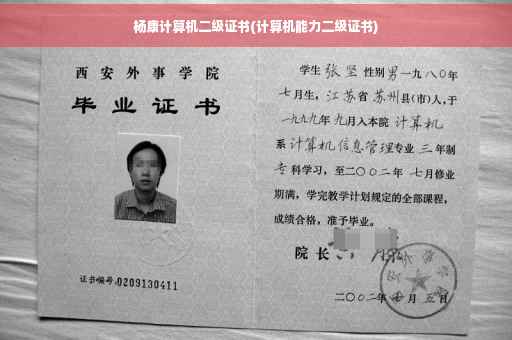 杨康计算机二级证书(计算机能力二级证书)
西安外事学院
毕业证书
证书编号:0209130411
学生张坚性别男一九八〇年
七月生，江苏省苏州县(市)人,于
一九九九年九月入本院计算机
系计算机信息管理专业三年制
专科学习，至二〇〇二年七月修业
期满，学完教学计划规定的全部课程，
成绩合格，准予毕业。
院长
二〇〇二年 月五日